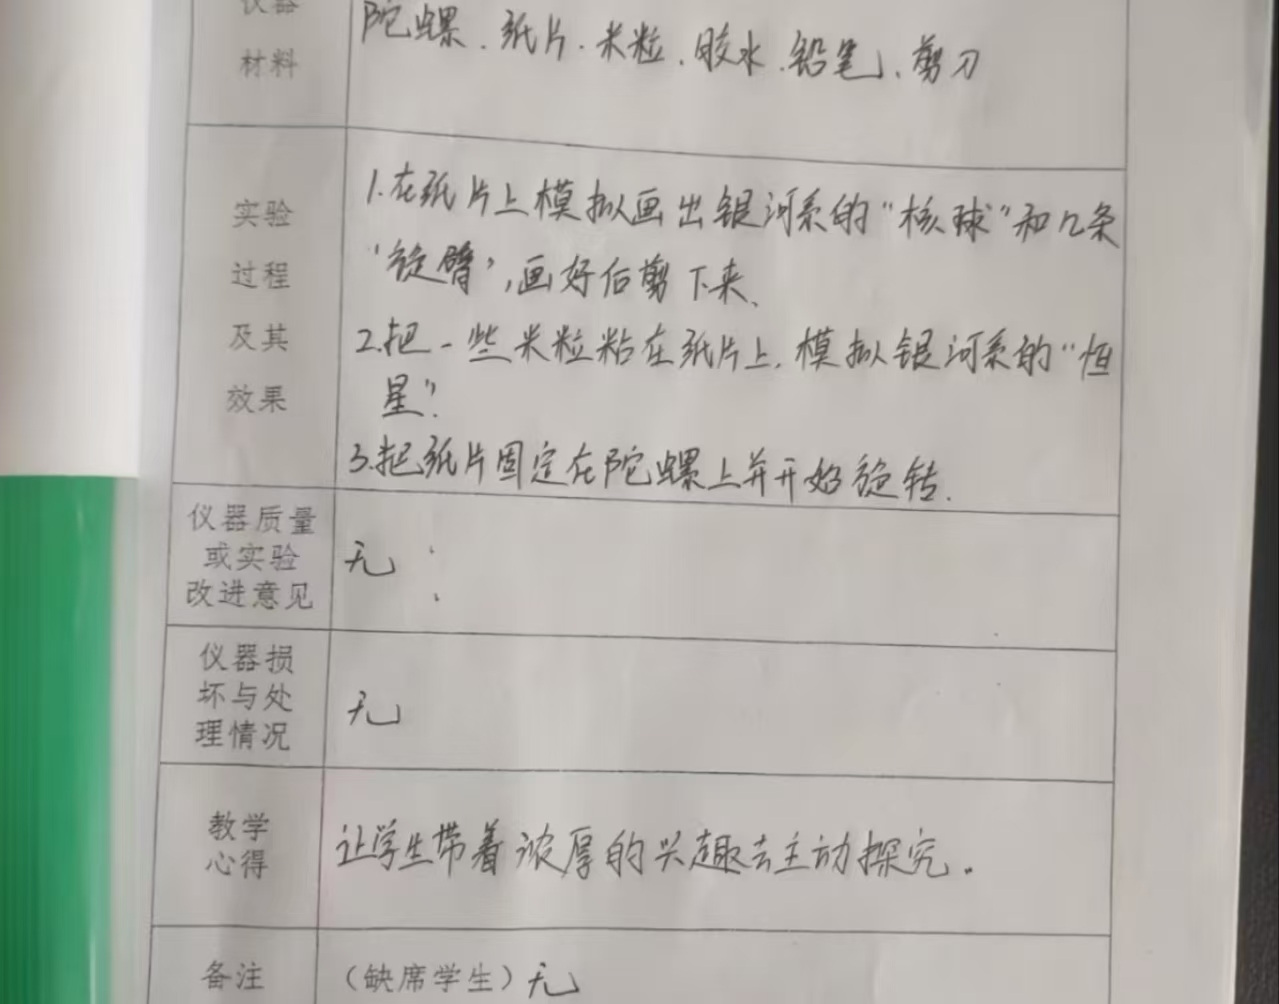 仪器
材料
陀螺、纸片、米粒、胶水、铅笔、剪刀
实验
过程
及其
效果
1.在纸片上模拟画出银河系的“核球”和几条
“旋臂”,画好后剪下来、
2.把一些米粒粘在纸片上,模拟银河系的“恒
星”.
3.把纸片固定在陀螺上并开始旋转.
仪器质量
或实验
改进意见
无
仪器损
坏与处
理情况
无
教学
心得
让学生带着浓厚的兴趣去主动探究.
备注
(缺席学生)无